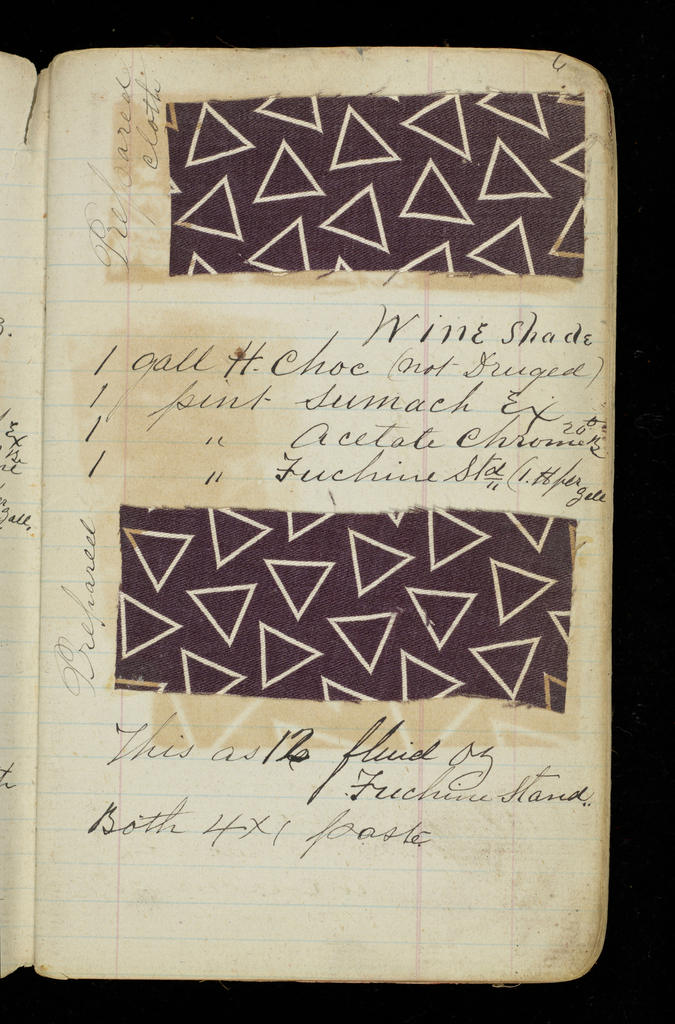 Prepared
cloth
Wine Shade
1 gall H. Choc (not Druged)
1 pint Sumach Ex
1 " Acetate Chrome 20° B
1 " Fuchine Std (1. H per
gall
Prepared
This as 12 fluid oz
Fuchine Stand.
Both 4x1 paste
Ex
gall,